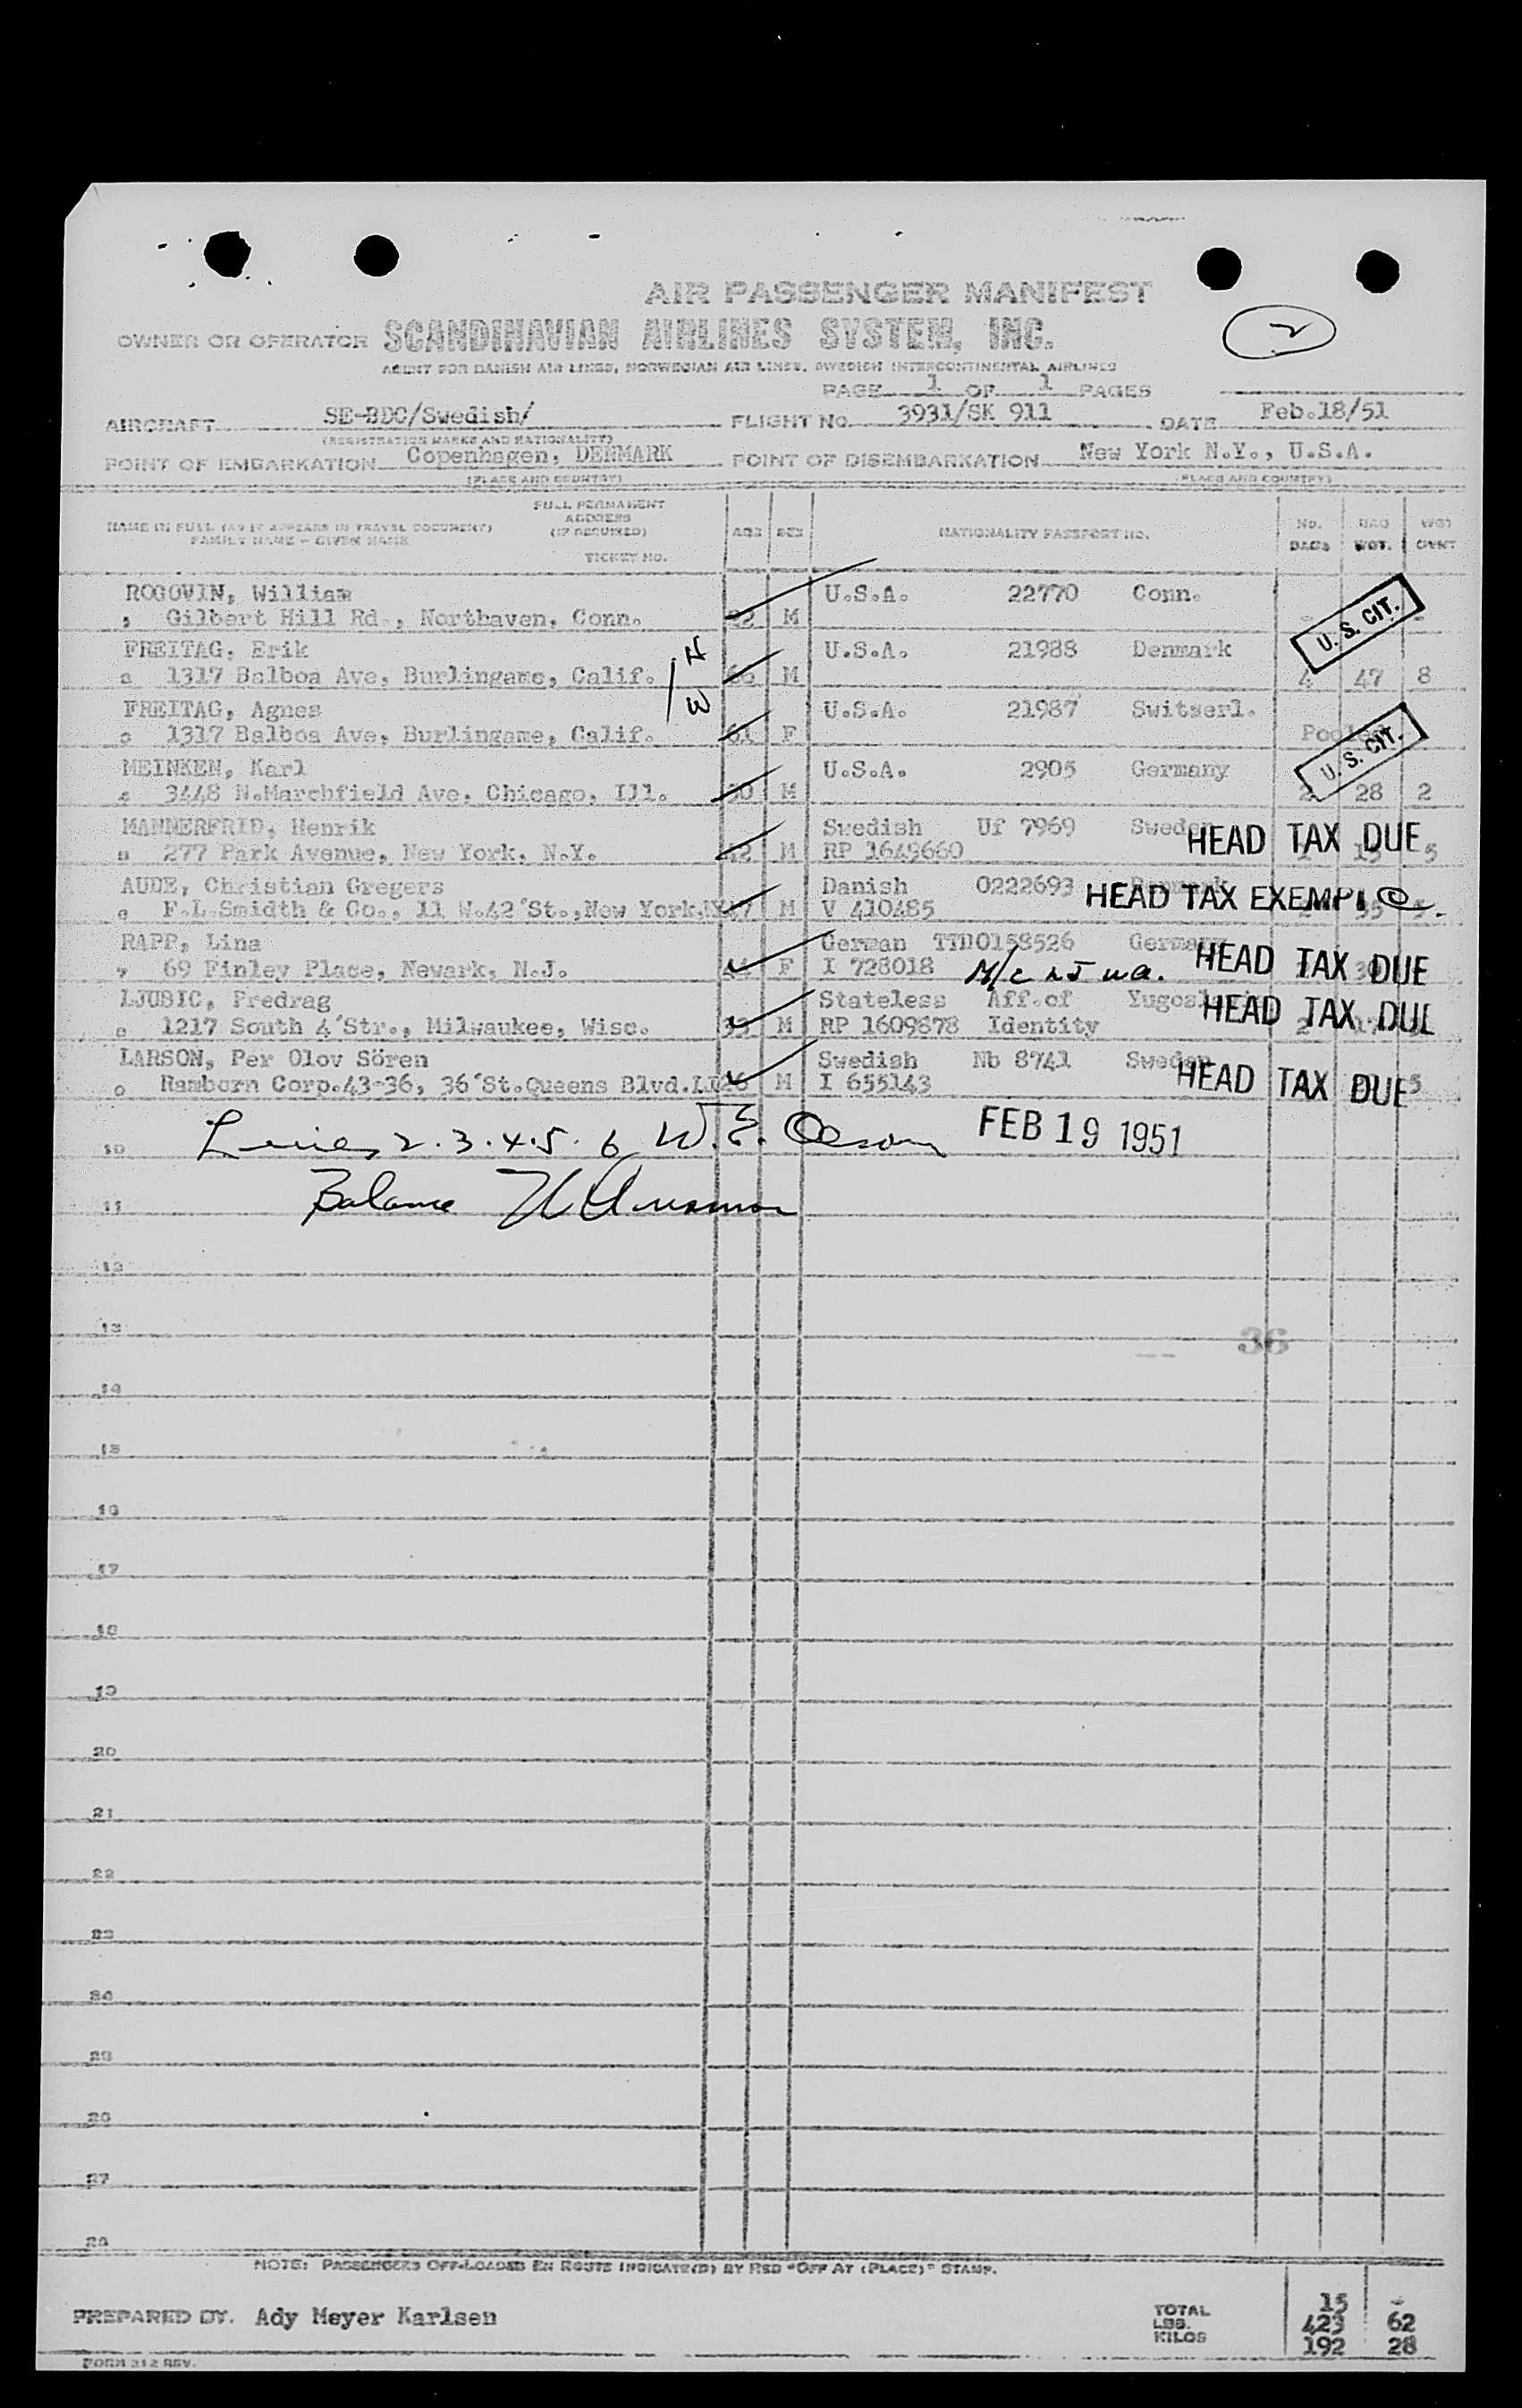 AIR PASSENGER MANIFEST
OWNER OR OPERATOR SCANDINAVIAN AIRLINES SYSTEM, INC.
2
AGENT FOR DANISH AIR LINES, NORWEGIAN AIR LINES, SWEDISH INTERCONTINENTAL AIRLINES
PAGE 1 OF 1 PAGES
AIRCRAFT SE-BDC/Swedish/ FLIGHT NO. 3931/SK 911 DATE Feb.18/51
(REGISTRATION MARKS AND NATIONALITY)
POINT OF EMBARKATION Copenhagen, DENMARK POINT OF DISEMBARKATION New York N.Y., U.S.A.
(PLACE AND COUNTRY) (PLACE AND COUNTRY)
NAME IN FULL (AS IT APPEARS IN TRAVEL DOCUMENT) FULL PERMANENT ADDRESS (IF REQUIRED) AGE SEX NATIONALITY PASSPORT NO. No. BAGS BAG WGT. WGT OVWT
FAMILY NAME - GIVEN NAME TICKET NO.
ROGOVIN, William U.S.A. 22770 Conn.
Gilbert Hill Rd., Northaven, Conn. M U.S. CIT.
FREITAG, Erik H U.S.A. 21988 Denmark
1317 Balboa Ave, Burlingame, Calif. M 4 47 8
FREITAG, Agnes W U.S.A. 21987 Switzerl.
1317 Balboa Ave, Burlingame, Calif. 61 F Pooled U.S. CIT.
MEINKEN, Karl U.S.A. 2905 Germany
3448 N.Marchfield Ave, Chicago, Ill. M 2 28 2
MANNERFRID, Henrik Swedish Uf 7969 Sweden HEAD TAX DUE
277 Park Avenue, New York, N.Y. 42 M RP 1649660 5
AUDE, Christian Gregers Danish 0222693 HEAD TAX EXEMPT
F.L.Smidth & Co., 11 W.42'St.,New York,NY 47 M V 410485
RAPP, Lina German TTD0158526 Germany HEAD TAX DUE
7 69 Finley Place, Newark, N.J. F I 728018
LJUBIC, Predrag Stateless Aff.of Yugosl HEAD TAX DUE
1217 South 4'Str., Milwaukee, Wisc. M RP 1609878 Identity 2 17
LARSON, Per Olov Sören Swedish Nb 8741 Sweden HEAD TAX DUE
Ramborn Corp.43-36, 36'St.Queens Blvd.LI 26 M I 655143 5
10 Lines 2.3.4.5.6 W.E. Olson FEB 19 1951
11 Balance
12
13
36
14
15
16
17
18
19
20
21
22
23
24
25
26
27
28
NOTE: PASSENGERS OFF-LOADED EN ROUTE INDICATE(D) BY RED "OFF AT (PLACE)" STAMP.
PREPARED BY. Ady Meyer Karlsen TOTAL 15 -
LBS. 423 62
KILOS 192 28
FORM 312 REV.